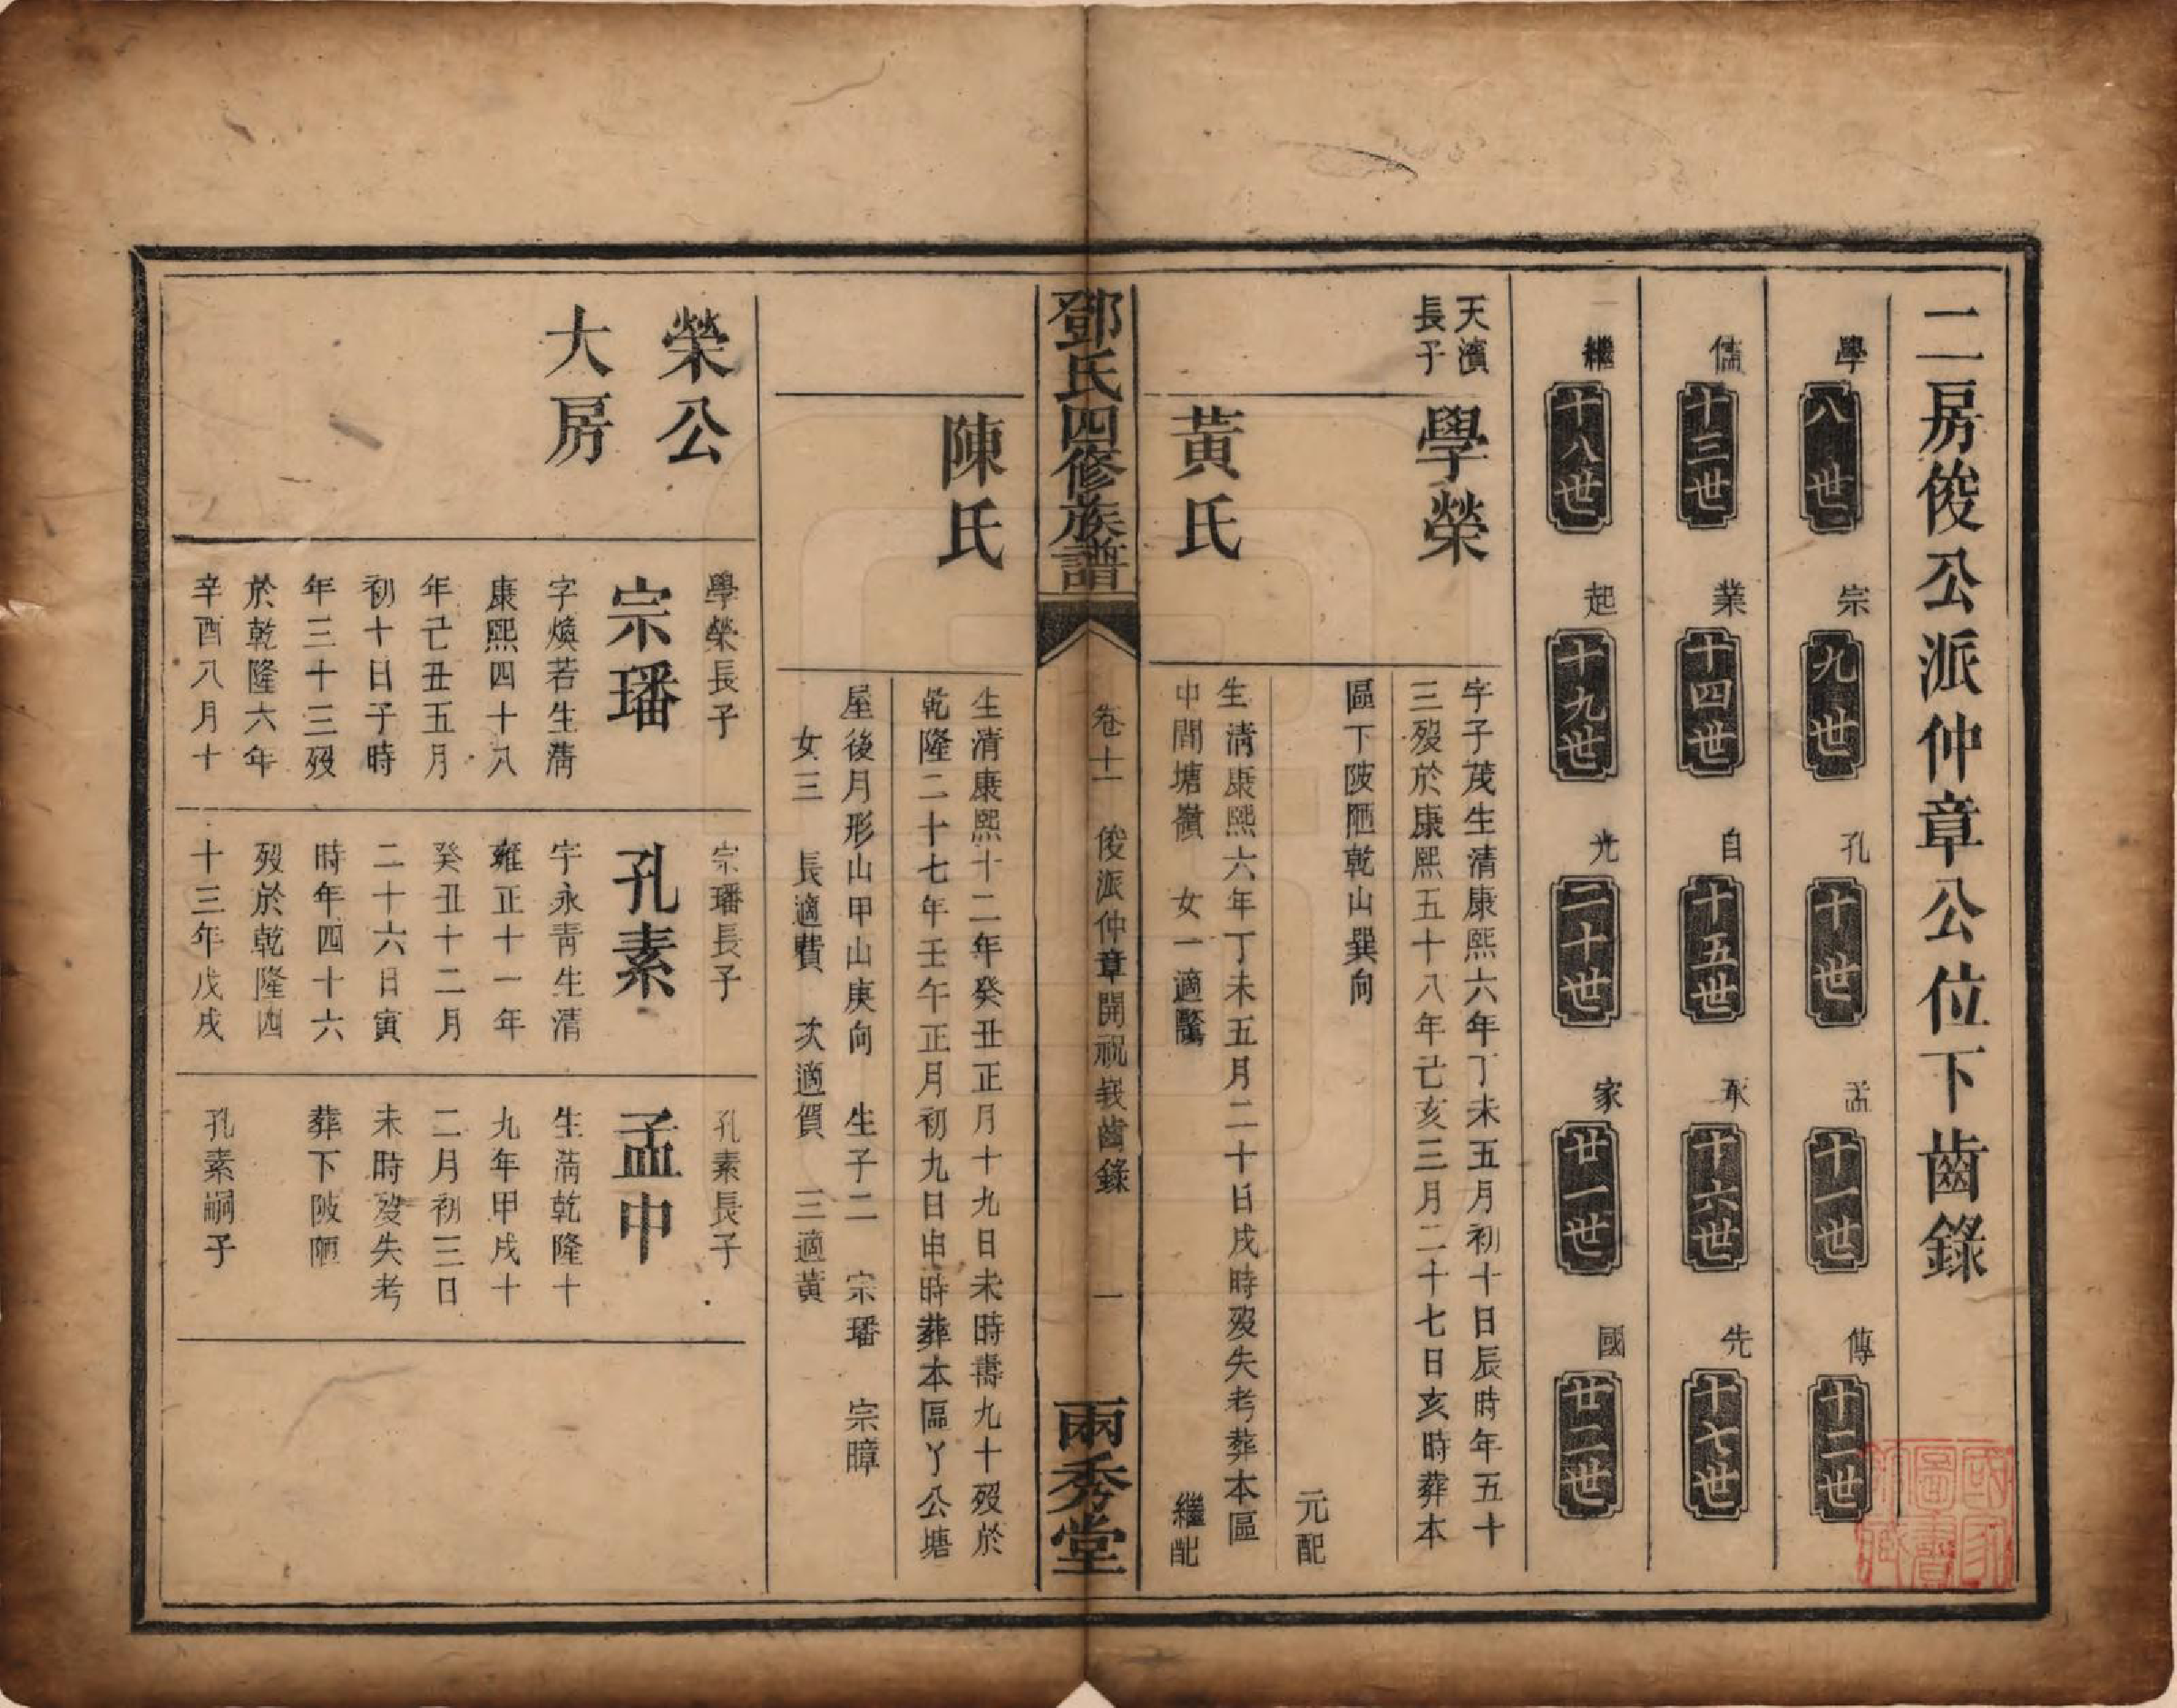 二房俊公派仲章公位下齒錄
學 八世 宗 九世 孔 十世 孟 十一世 傳 十二世
儒 十三世 業 十四世 自 十五世 承 十六世 先 十七世
繼 十八世 起 十九世 光 二十世 家 廿一世 國 廿二世
天濱
長子
學榮
字子茂生清康熙六年丁未五月初十日辰時年五十
三歿於康熙五十八年己亥三月二十七日亥時葬本
區下陂陋乾山巽向
元配
黃氏
生清康熙六年丁未五月二十日戌時歿失考葬本區
中間塘嶺 女一適
繼配
鄧氏四修族譜
卷十一 俊派仲章開祝峩齒錄 一
兩秀堂
陳氏
生清康熙十二年癸丑正月十九日未時壽九十歿於
乾隆二十七年壬午正月初九日申時葬本區丫公塘
屋後月形山甲山庚向 生子二 宗璠 宗暲
女三 長適費 次適賀 三適黃
榮公
大房
學榮長子
宗璠
字煥若生清
康熙四十八
年己丑五月
初十日子時
年三十三歿
於乾隆六年
辛酉八月十
宗璠長子
孔素
字永青生清
雍正十一年
癸丑十二月
二十六日寅
時年四十六
歿於乾隆四
十三年戊戌
孔素長子
孟中
生清乾隆十
九年甲戌十
二月初三日
未時歿失考
葬下陂陋
孔素嗣子